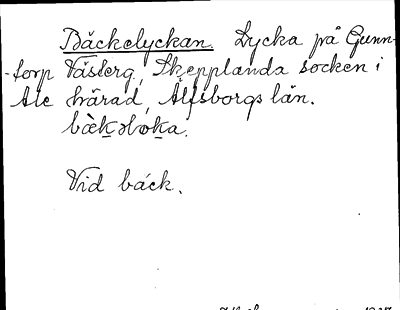 Bäckelyckan Lycka på Gunn-
-torp Västerg, Skepplanda socken i
Ale härad, Älfsborgs län.
Vid bäck.